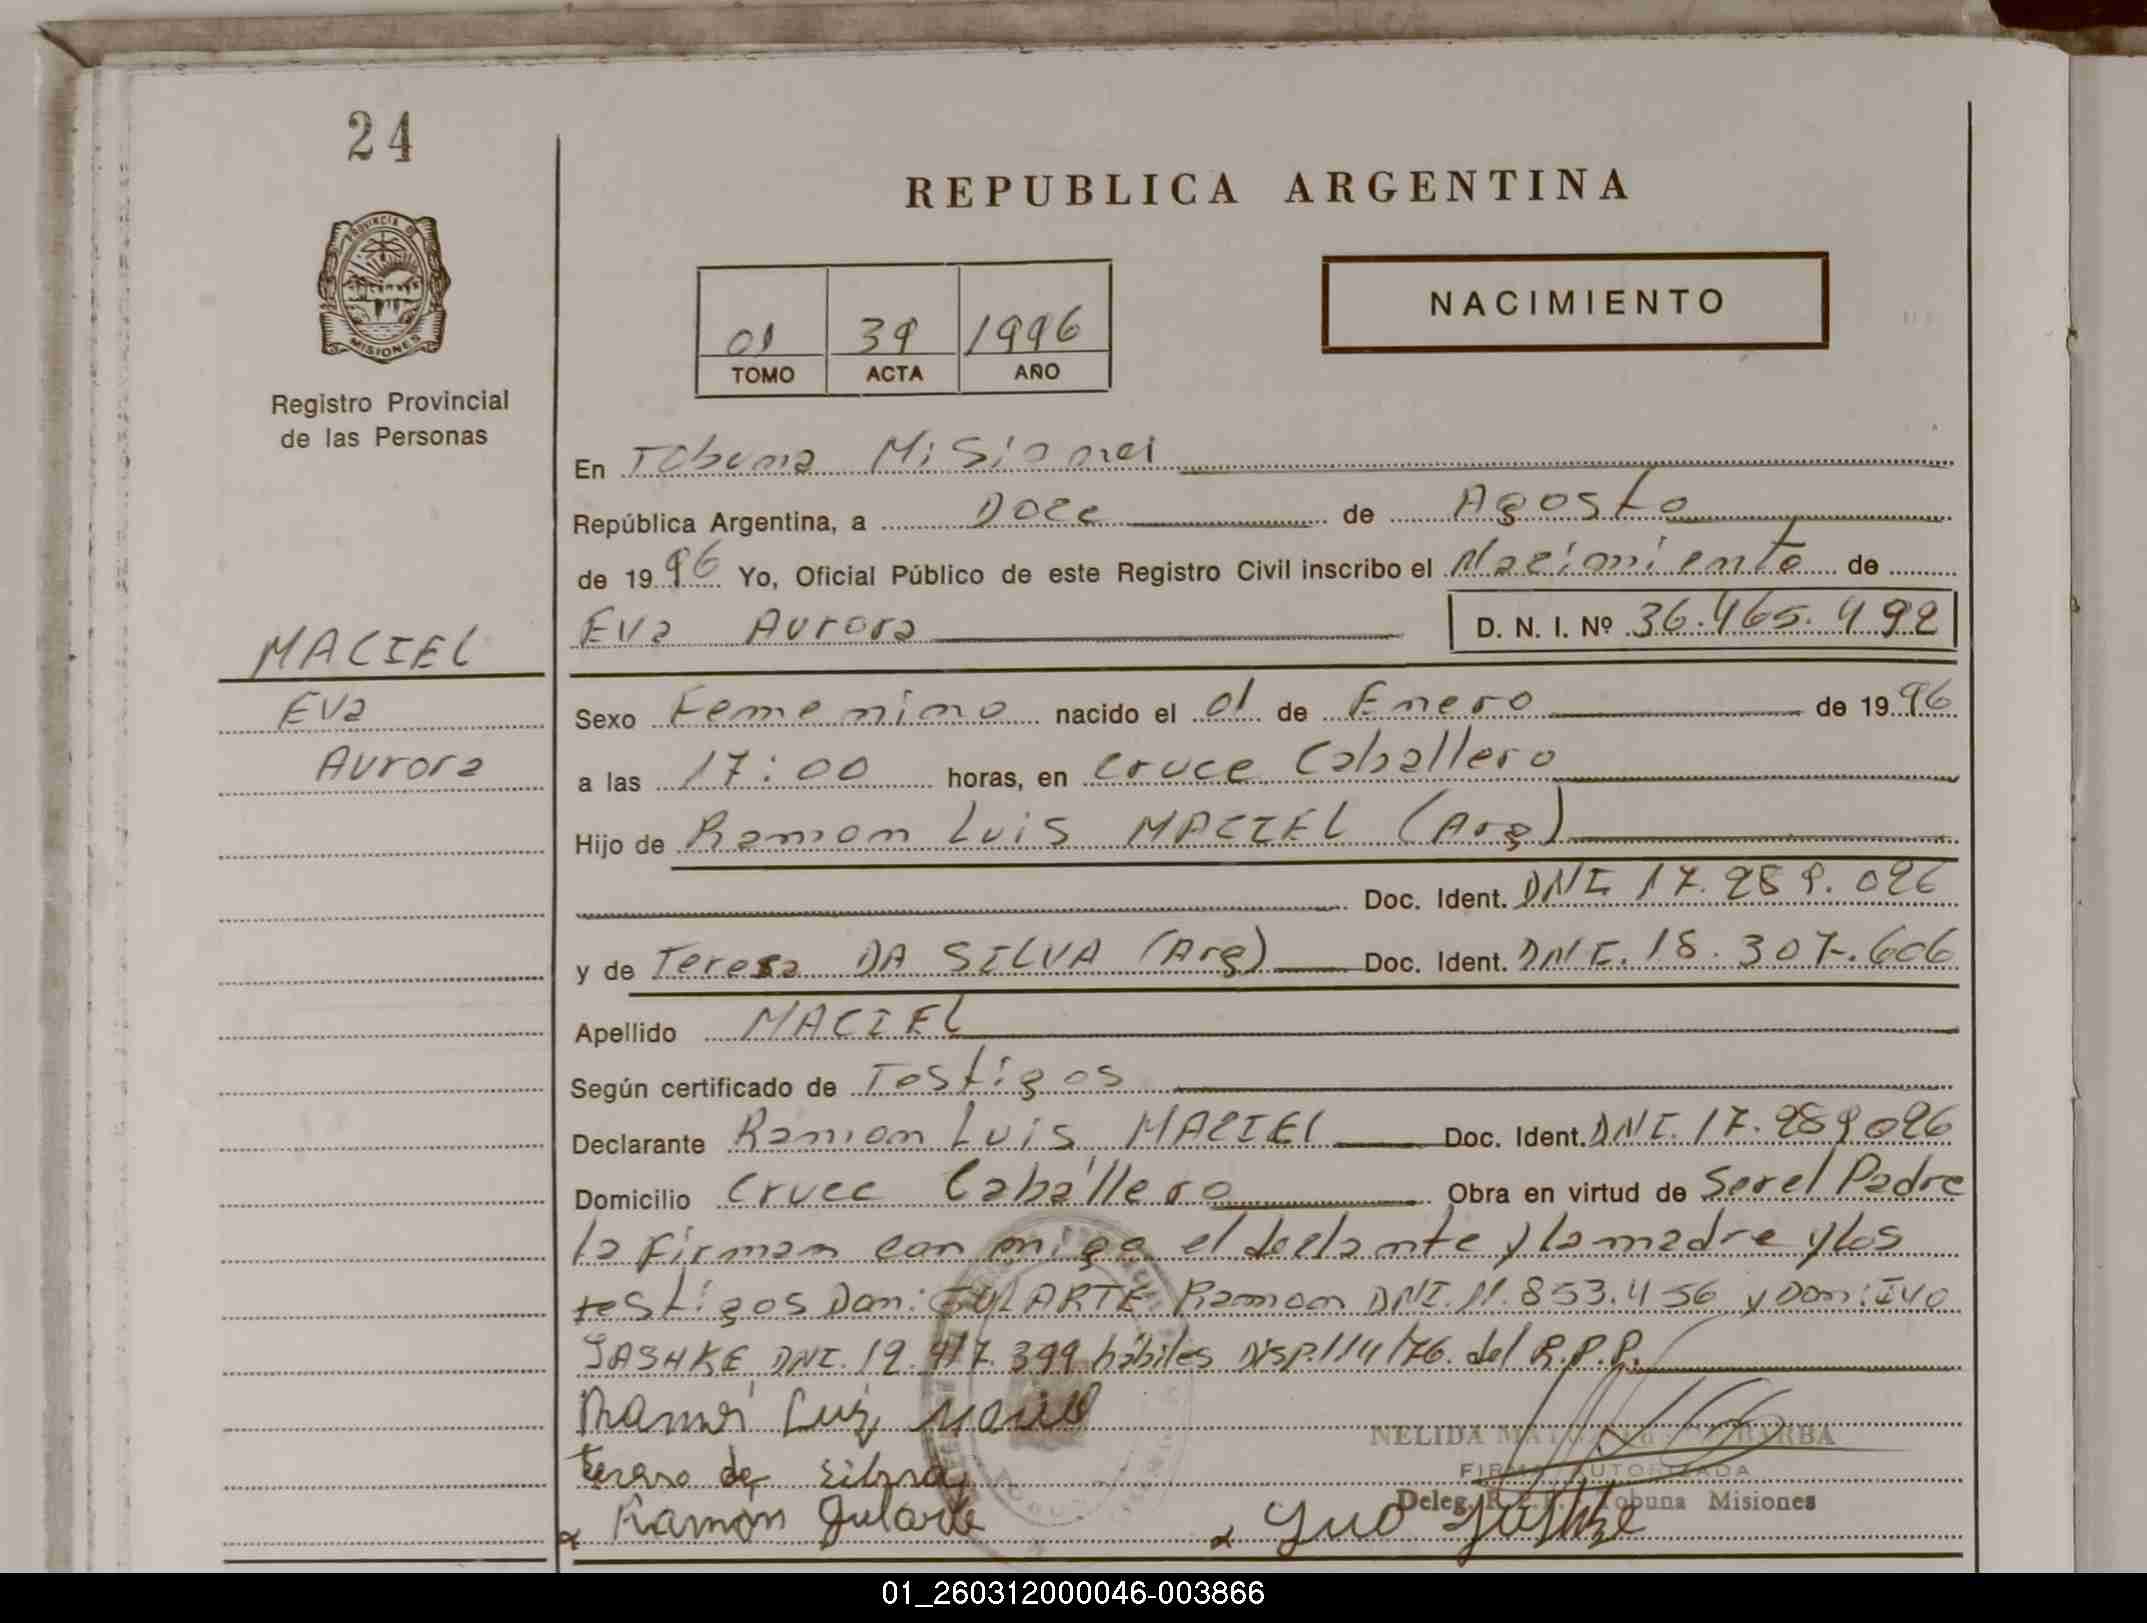 24
REPUBLICA ARGENTINA
PROVINCIA DE
MISIONES
NACIMIENTO
01 39 1996
TOMO ACTA AÑO
Registro Provincial
de las Personas
En Tobuna Misiones
República Argentina, a Doce de Agosto
de 1996 Yo, Oficial Público de este Registro Civil inscribo el Nacimiento de
Eva Aurora D. N. I. Nº 36.465.492
MACIEL
Eva
Aurora
Sexo Femenino nacido el 01 de Enero de 1996
a las 17:00 horas, en Cruce Caballero
Hijo de Ramon Luis MACIEL (Arg)
Doc. Ident. DNI 17.289.026
y de Teresa DA SILVA (Arg) Doc. Ident. DNI. 18.307.606
Apellido MACIEL
Según certificado de Testigos
Declarante Ramon Luis MACIEL Doc. Ident. DNI. 17.289026
Domicilio Cruce Caballero Obra en virtud de Ser el Padre
la Firman con migo el y la madre y los
testigos Don: Ramon DNI. 11.853.456 y Don: IVO
JASHKE DNI. 12.417.399 hábiles Disp. 114/76. del R.P.P.
Luis Maciel
NELIDA BARBA
FIRMA AUTORIZADA
Teresa da silva
Deleg. Tobuna Misiones
Ramón Gularte Ivo Jashke
01_260312000046-003866